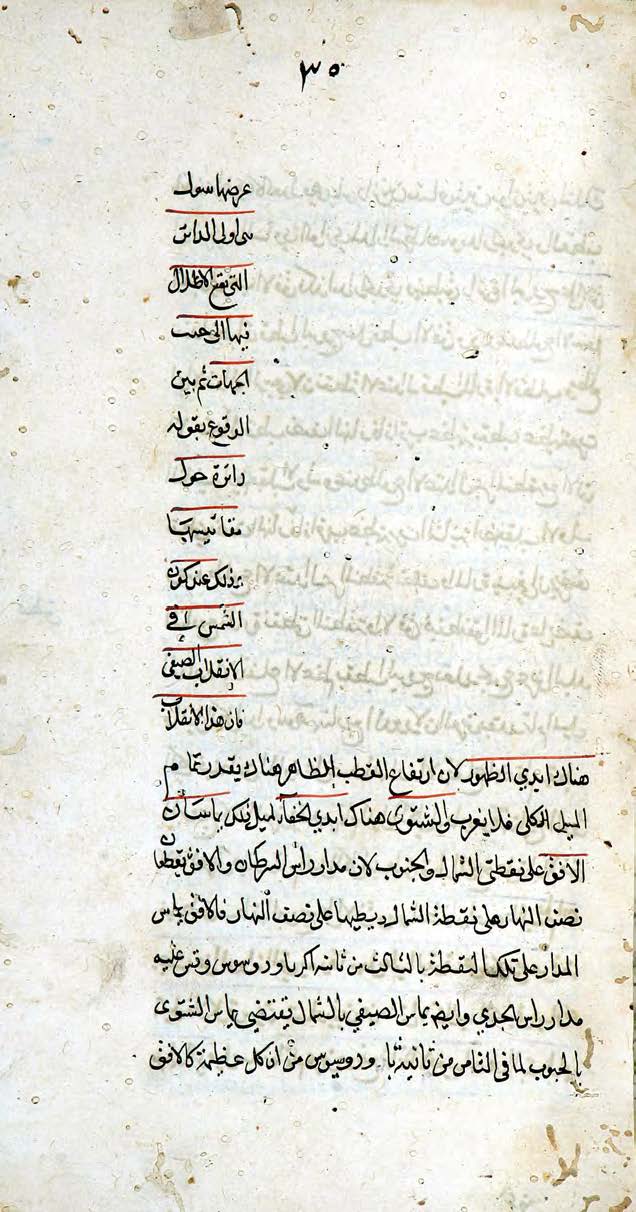 ٣٥
عرضها سول
سى اولى الدائرة
التى يقع الاظلال
فيها الى جميع
الجهات ثم بين
الوقوع بقوله
دائرة حول
مقاييسها
وذلك عند كون
الشمس فى
الانقلاب الصيفى
فان هذا الانقلاب
هناك ابدي الظهور لان ارتفاع القطب الظاهر هناك بقدر تمام
الميل الكلى فلا يغرب والشتوى هناك ابدي الخفاء لميل تلك يماسان
الافق على نقطتى الشمال والجنوب لان مدار راس السرطان والافق يقطعا
نصف النهار على نقطة الشمال وقطباها على نصف النهار فالافق يماس
المدار على تلك النقطة بالثالث من ثانية اكر ثاوذوسيوس وقس عليه
مدار راس الجدي وايضا يماس الصيفي بالشمال يقتضى يماس الشتوى
بالجنوب لما فى الثامن من ثانية ثاوذوسيوس من ان كل عظيمة كالافق